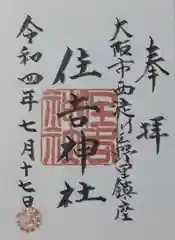 奉拝
大阪市西淀川区野里鎮座
住吉神社
令和四年七月十七日